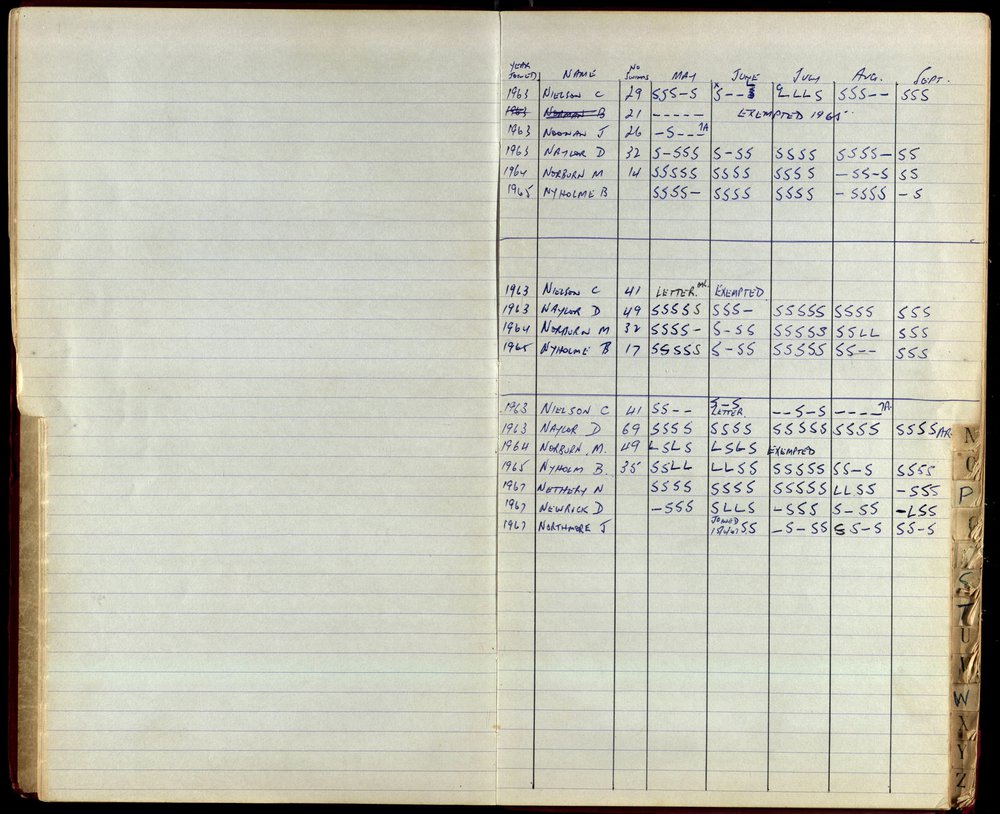 YEAR JOINED NAME NO SWIMS MAY JUNE JULY AUG. SEPT.
1963 NIELSON C 29 SSS-S S--S LLLS SSS-- SSS
1963 NORMAN B 21 ----- EXEMPTED 1965
1963 NOONAN J 26 -S---
1963 NAYLOR D 32 S-SSS S-SS SSSS SSSS- SS
1964 NORBURN M 14 SSSSS SSSS SSSS -SS-S SS
1965 NYHOLME B SSSS- SSSS SSSS -SSSS -S
1963 NIELSON C 41 LETTER. EXEMPTED
1963 NAYLOR D 49 SSSSS SSS- SSSSS SSSS SSS
1964 NORBURN M 32 SSSS- S-SS SSSSS SSLL SSS
1965 NYHOLME B 17 SSSSS S-SS SSSSS SS-- SSS
1963 NIELSON C 41 SS-- S-S LETTER --S-S ----
1963 NAYLOR D 69 SSSS SSSS SSSSS SSSS SSSS
1964 NORBURN. M. 49 LSLS LSLS EXEMPTED
1965 NYHOLM B. 35 SSLL LLSS SSSSS SS-S SSSS
1967 NETHERY N SSSS SSSS SSSSS LLSS -SSS
1967 NEWRICK D -SSS SLLS LSSS S-SS -LSS
1967 NORTHMORE J JOINED SS -S-SS SS-S SS-S
N
O
P
S
T
U
W
X
Y
Z